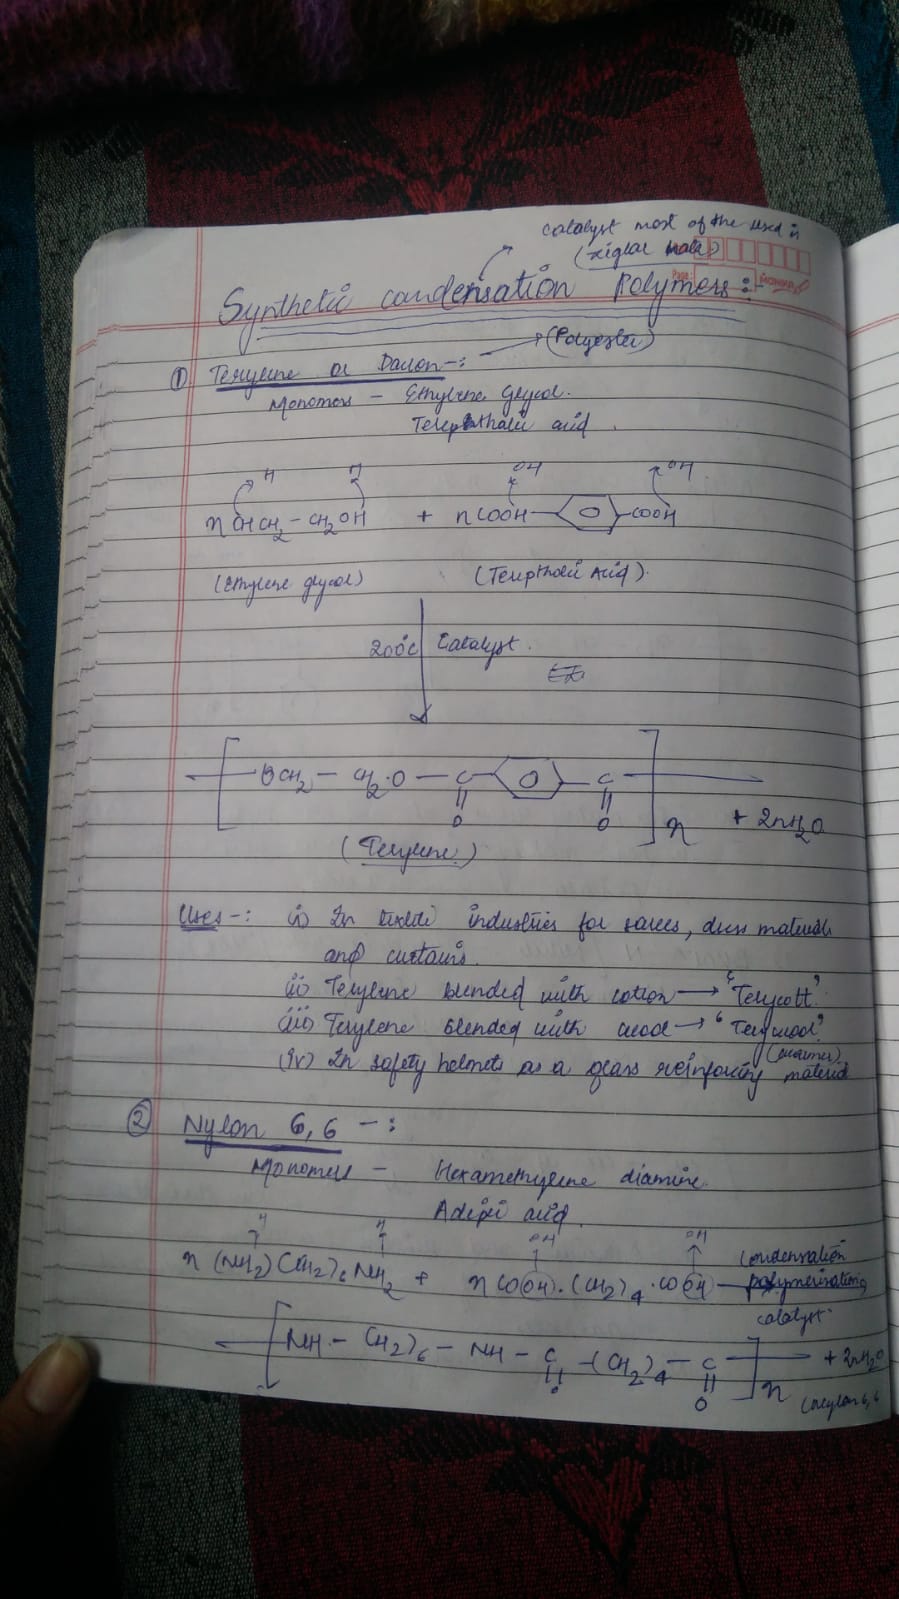 catalyst most of the used is
Synthetic condensation Polymers :-
(Polyester)
① Terylene or Dacron -:
Monomers - Ethylene Glycol.
Terephthalic acid.
H H OH OH
n OHCH2 - CH2OH + n COOH- -COOH
(Ethylene glycol) (Terepthalic Acid).
200°C Catalyst.
[ OCH2 - CH2.O - C - - C ]n + 2nH2O
O O
(Terylene.)
Uses -: (i) In textile industries for sarees, dress materials
and curtains.
(ii) Terylene blended with cotton → 'Terycott'
(iii) Terylene blended with wool → 'Terywool'
(iv) In safety helmets as a glass reinforcing material
② Nylon 6,6 -:
Monomers - Hexamethylene diamine.
Adipic acid.
H H OH OH
n (NH2) (CH2)6 NH2 + n COOH. (CH2)4 .COOH condensation
polymerisation
catalyst.
[ NH - (CH2)6 - NH - C - (CH2)4 - C ]n + 2nH2O
O O
(nylon 6,6